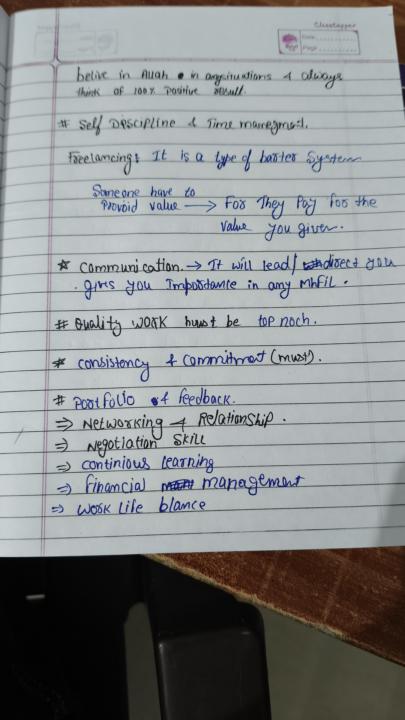 Classtapper
Date
Page
belive in Allah in any situations & always
think of 100% Positive result.
# Self Descipline & Time
Freelancing: It is a type of barter System
Someone have to
Provoid value → For They Pay for the
value you given.
☆ Communication. → It will lead / direct you
. gives you Importance in any Mhfil.
# Quality WORK must be top noch.
* consistency & commitment (must).
# Portfolio of feedback.
⇒ Networking & Relationship.
⇒ Negotiation Skill
⇒ continious learning
⇒ financial management
⇒ Work Life blance